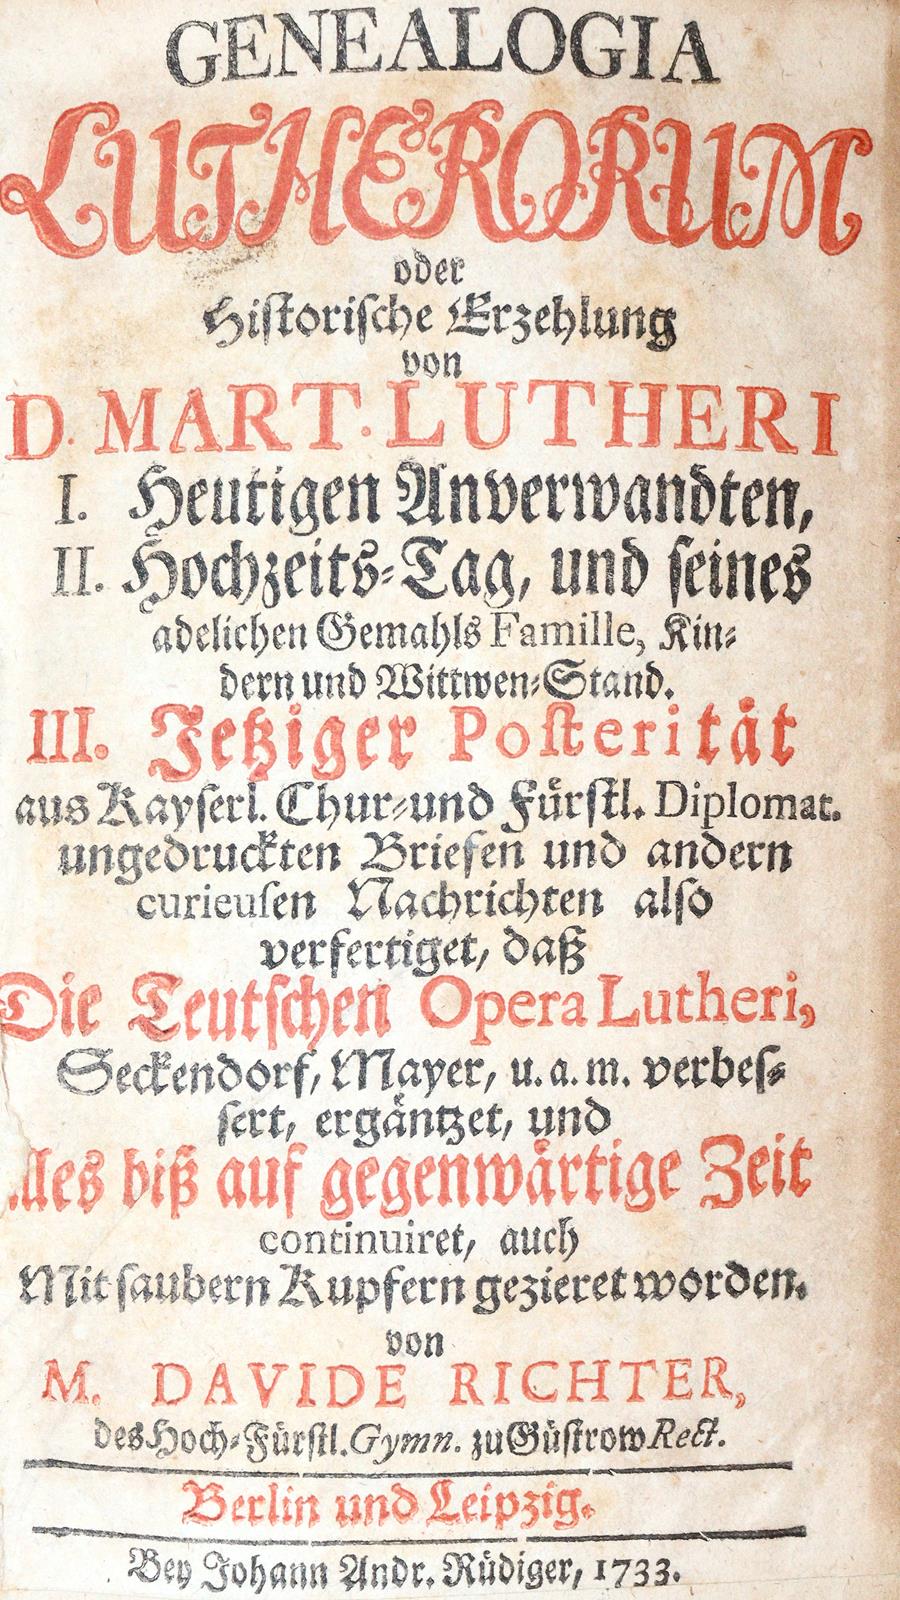 GENEALOGIA
LUTHERORUM
oder
Hiſtoriſche Erzehlung
von
D. MART. LUTHERI
I. Heutigen Anverwandten,
II. Hochzeits-Tag, und ſeines
adelichen Gemahls Famille, Kin-
dern und Wittwen-Stand.
III. Jetziger Poſterität
aus Kayſerl. Chur- und Fürſtl. Diplomat.
ungedruckten Briefen und andern
curieuſen Nachrichten alſo
verfertiget, daß
Die Teutſchen Opera Lutheri,
Seckendorf, Mayer, u. a. m. verbeſ-
ſert, ergäntzet, und
Alles biß auf gegenwärtige Zeit
continuiret, auch
Mit ſaubern Kupfern gezieret worden.
von
M. DAVIDE RICHTER,
des Hoch-Fürſtl. Gymn. zu Güſtrow Rect.
Berlin und Leipzig.
Bey Johann Andr. Rüdiger, 1733.